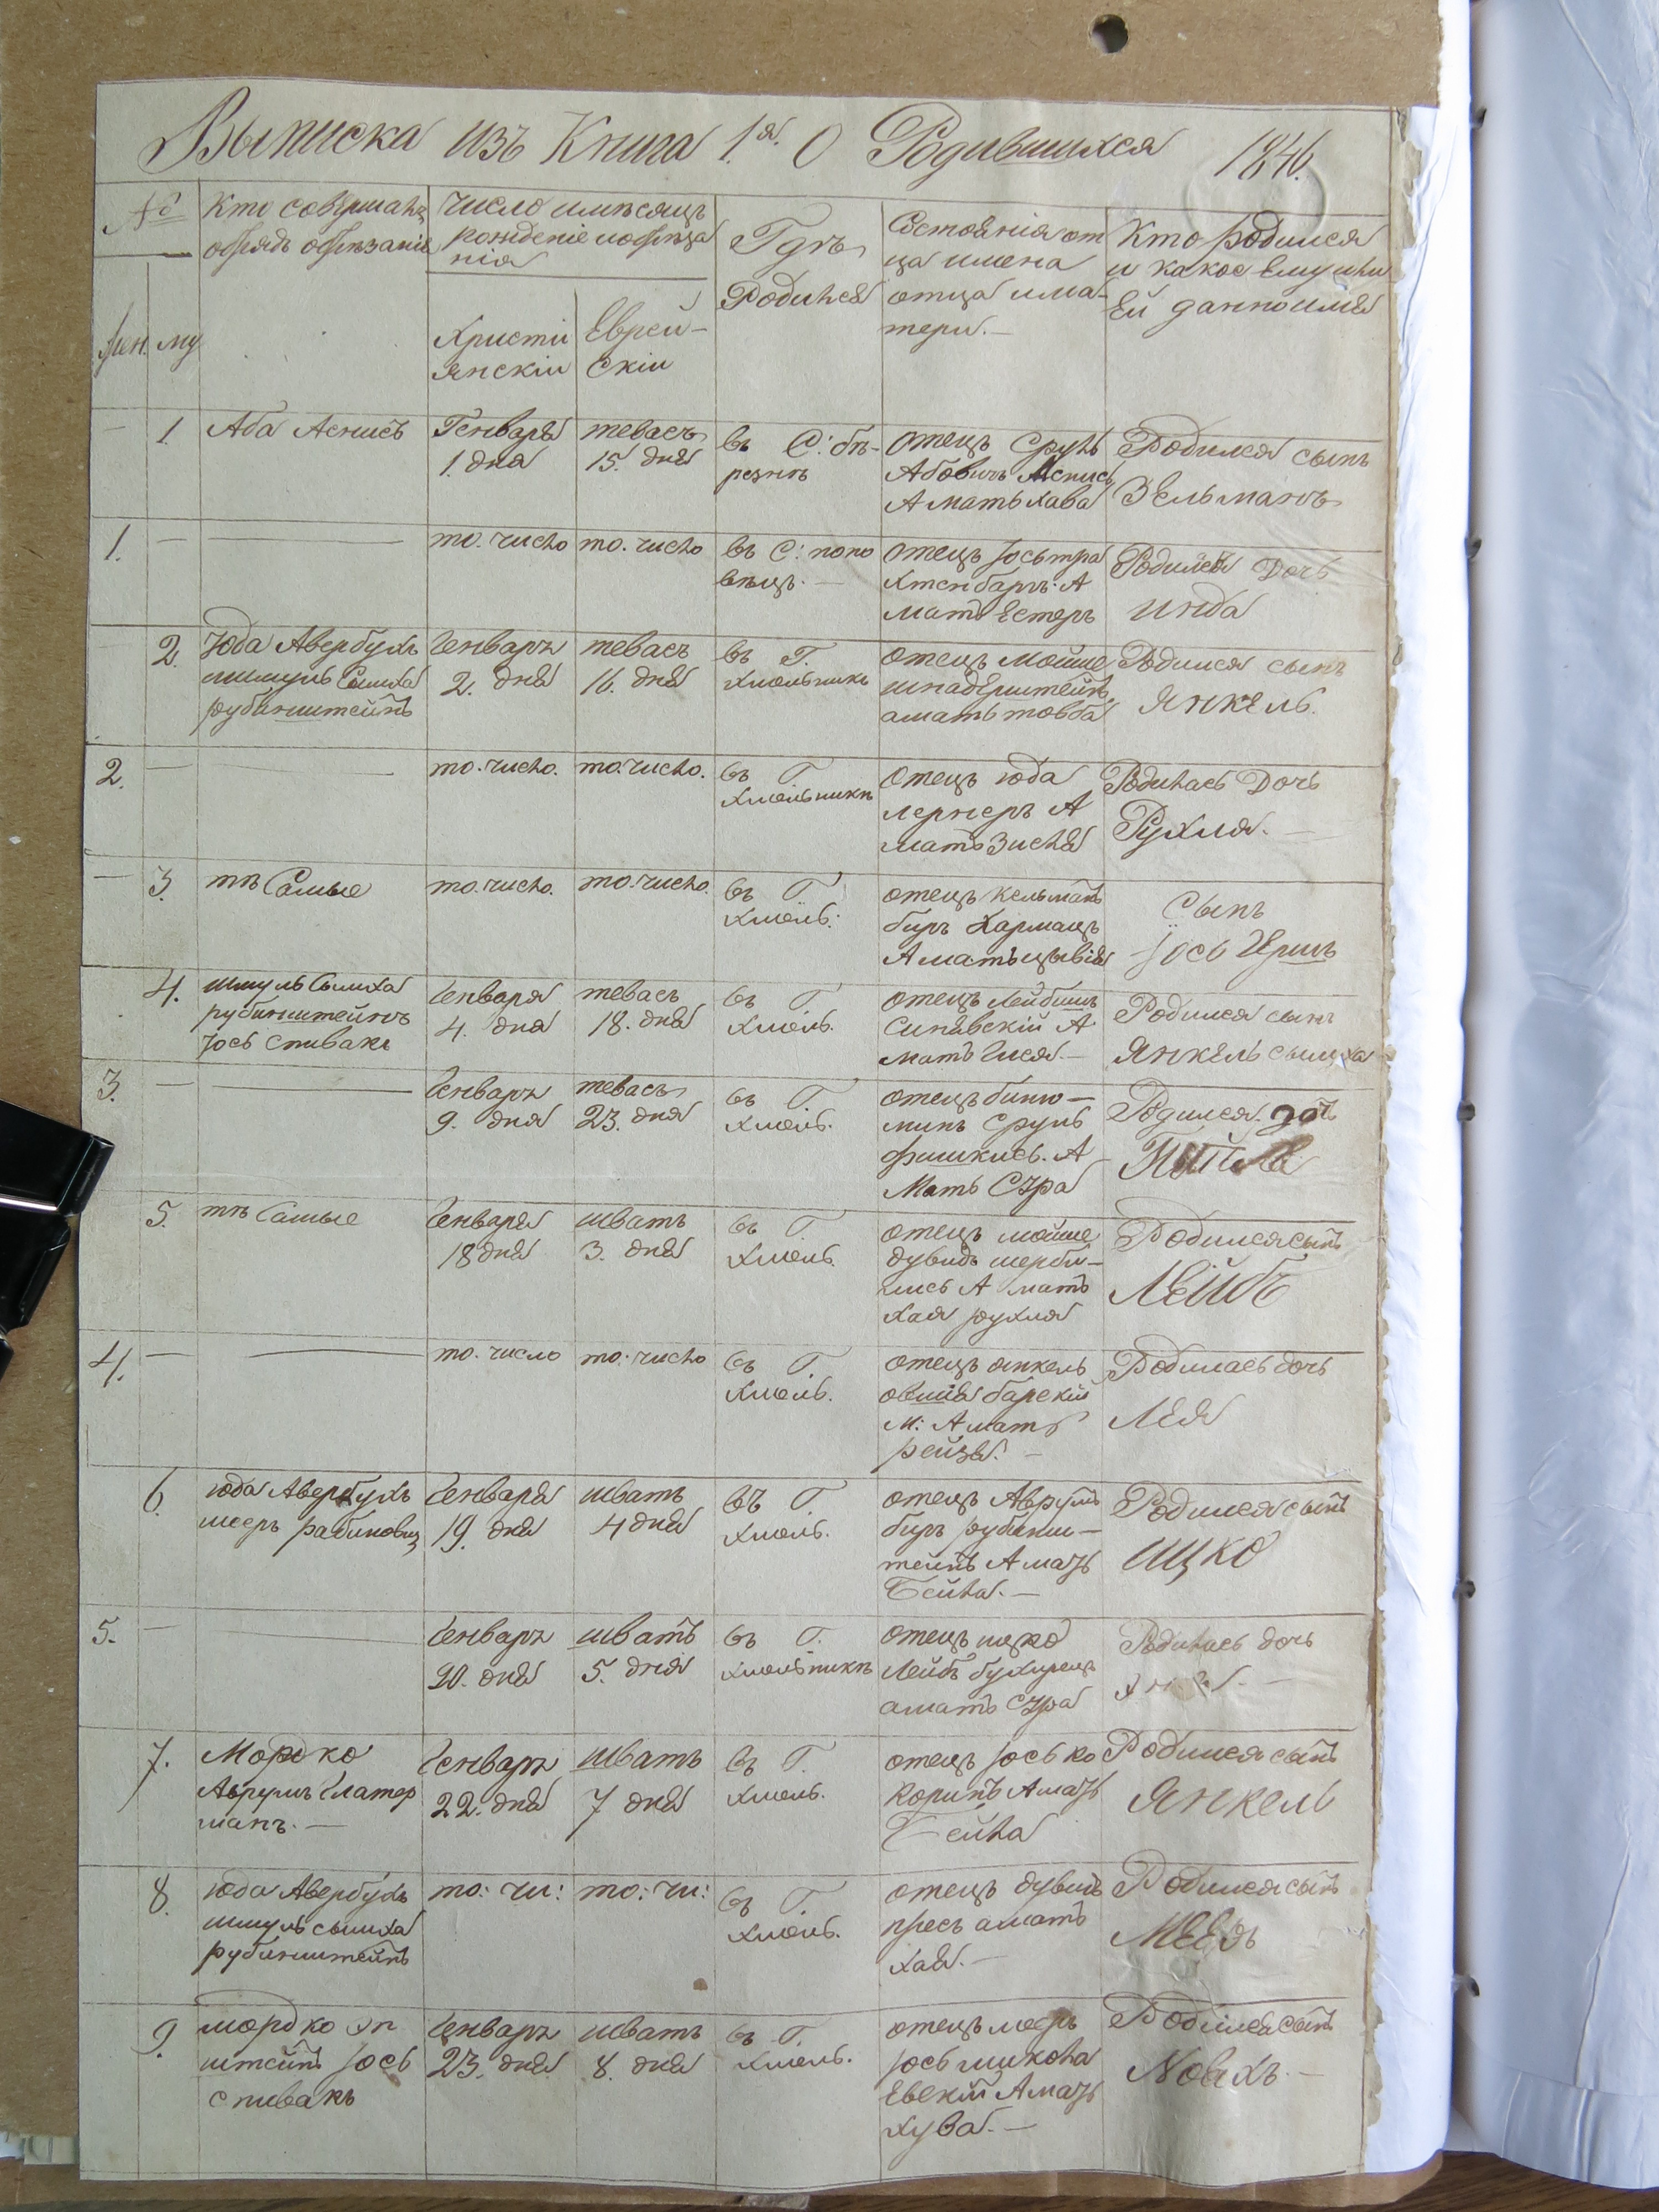 Выписка изъ Книга 1.я О Родившихся 1846.
№
Кто совершалъ
обрядъ обрѣзанія
Число имѣсяцъ
рожденіе иобрѣза
нія
Христи
янскіи
Еврей-
скіи
Гдѣ
Родился
Состоянія от
ца имена
отца има-
тери.—
Кто родился
и какое Ему или
Ей данно имя
жен. му
1. Аба Аснисъ
Генваря
1. дня
тевасъ
15. дня
въ С: бѣ-
резнѣ
отецъ Сруль
Абовичъ Аснисъ
А мать хава
Родился сынъ
Зельманъ
1. — —
то. число
то. число
въ С: попо
вецъ.—
отецъ Іось тра
хтенбаргъ: А
мать Естеръ
Родился Дочь
инда
2. Юда Авербухъ
шмуль Сымха
рубинштейнъ
Генваръ
2. дня
тевасъ
16. дня
въ Г.
хмѣльникъ
отецъ Мойше
шнадерштейнъ
амать товба
Родился сынъ
Янкель.
2. — —
то. число.
то. число.
въ Г.
хмѣльникѣ
отецъ юда
лернеръ А
мать Зисля
Родилась Дочь
Рухля.—
— 3. тѣ Самые
то. число.
то. число.
въ Г.
хмѣль:
отецъ кельманъ
беръ Хармацъ
А мать цывія
Сынъ
Іось Гершъ
4. шмуль Сымха
рубинштейнъ
Іось спивакъ
Генваря
4. дня
тевасъ
18. дня
въ Г.
хмѣль.
отецъ Лейбишъ
Синявскій А
мать Гися.—
Родился сынъ
Янкель сымха
3. — —
Генваръ
9. дня
тевасъ
23. дня
въ Г
хмѣль.
отецъ биню-
минъ Сруль
фишкись. А
Мать Сура
Родился. дочь
5. тѣ Самые
Генваря
18 дня
шватъ
3. дня
въ Г.
хмѣль.
отецъ мойше
дувидъ
А мать
хая рухля
Родился сынъ
Лейбъ
4. — —
то. число
то. число
въ Г.
хмѣль.
отецъ янкель
овшія барскій
м: А мать
рейзя.—
Родилась дочь
Лея
6. юда Авербухъ
мееръ рабиновиц
Генваря
19. дня
шватъ
4 дня
въ Г.
хмѣль.
отецъ Аврумъ
беръ рубинш-
тейнъ А мать
Бейла.—
Родился сынъ
ицко
5. — —
Генваръ
20. дня
шватъ
5. дня
въ Г.
хмѣльникѣ
отецъ ицко
Лейбъ
амать Сура
Родилась дочь
7. Мордко
Аврумъ Глатер
манъ.—
Генваръ
22. дня
шватъ
7 дня
въ Г.
хмѣль.
отецъ Іосько
коринъ А мать
Бейла
Родился сынъ
Янкель
8. юда Авербухъ
шмуль сымха
рубинштейнъ
то: чи:
то: чи:
въ Г.
хмѣль.
отецъ дувидъ
пресъ амать
хая.—
Родился сынъ
Мееръ
9. мордко эп
штейнъ Іось
спивакъ
Генваръ
23. дня
шватъ
8. дня
въ Г.
хмѣль.
отецъ мееръ
Іось никола
Евскій А мать
хува.—
Родился сынъ
Новхъ.—